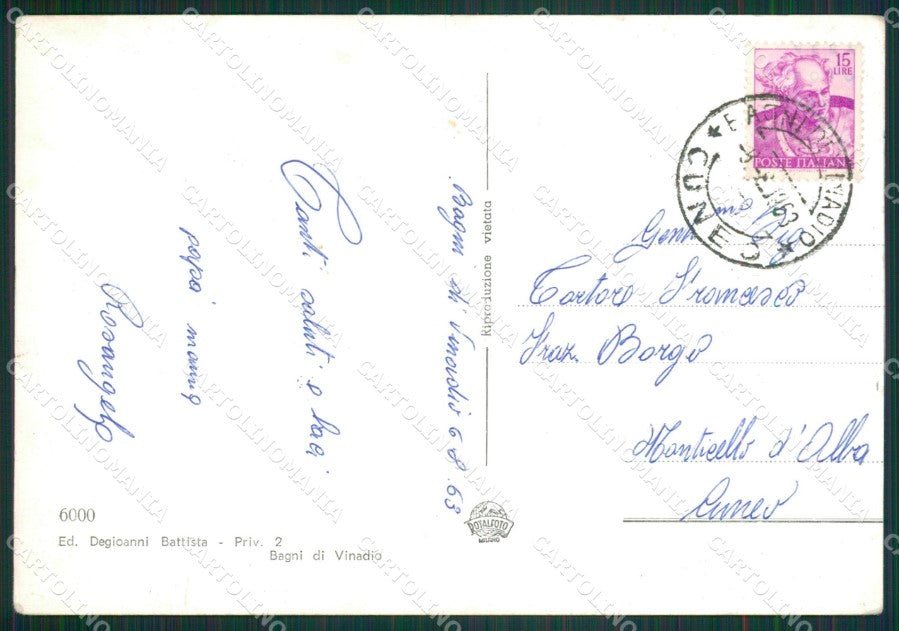 Bagni di Vinadio 6 8 . 63
Tanti saluti e baci
papà mamma
Rosangela
6000
Ed. Degioanni Battista - Priv. 2
Bagni di Vinadio
Riproduzione vietata
ROTALFOTO
MILANO
15
LIRE
POSTE ITALIANE
BAGNI DI VINADIO
CUNEO
Tortore Francesco
Fraz. Borgo
Monticello d'Alba
Cuneo
CARTOLINOMANIA